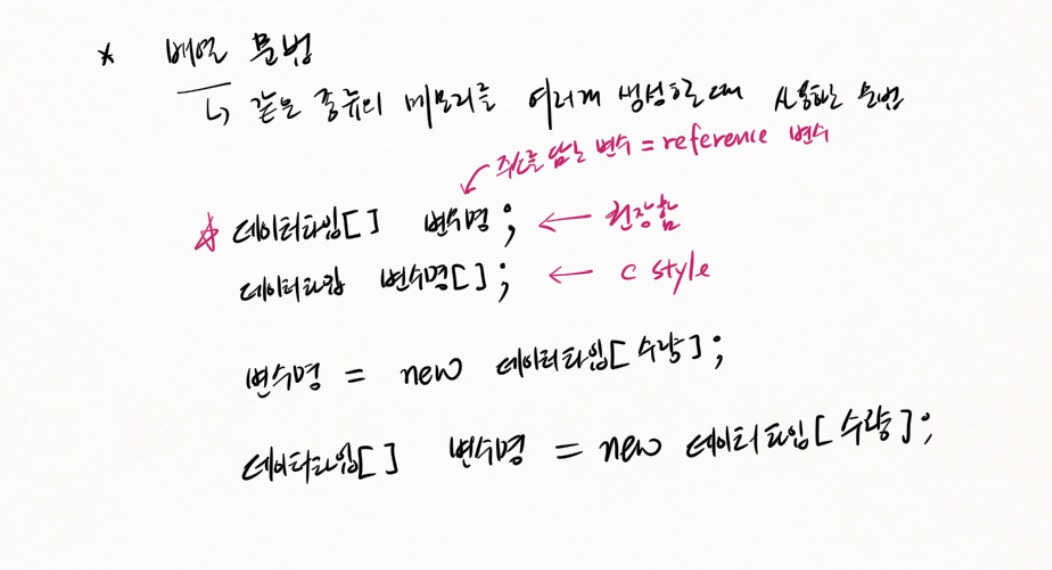 * 배열 문법
↳ 같은 종류의 메모리를 여러개 생성할때 사용하는 문법
주소를 담는 변수 = reference 변수
☆ 데이터타입[] 변수명; ← 권장함
데이터타입 변수명[]; ← C style
변수명 = new 데이터타입[수량];
데이터타입[] 변수명 = new 데이터타입[수량];